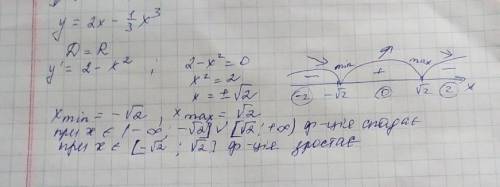 y = 2x - 1/3 x³
D = R
y' = 2 - x² ; 2 - x² = 0
x² = 2
x = ± √2
min max
- + -
-2 -√2 0 √2 2 x
x min = -√2 , x max = √2
при x ∈ (-∞; -√2] ∪ [√2; +∞) ф-ція спадає
при x ∈ [-√2 ; √2] ф-ція зростає